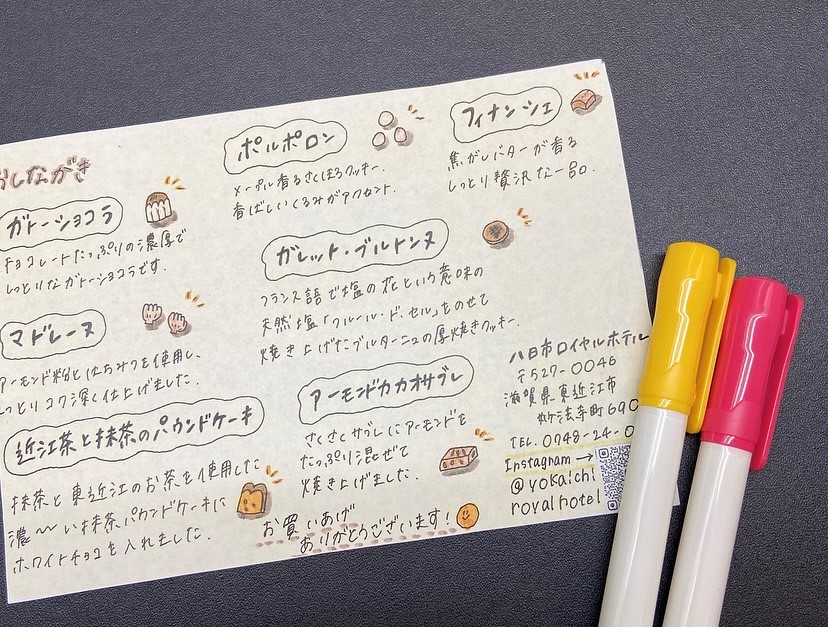 おしながき
ガトーショコラ
チョコレートたっぷりの濃厚で
しっとりなガトーショコラです.
マドレーヌ
アーモンド粉とはちみつを使用し、
しっとりコク深く仕上げました.
近江茶と抹茶のパウンドケーキ
抹茶と東近江のお茶を使用した
濃〜い抹茶パウンドケーキに
ホワイトチョコを入れました.
ポルポロン
メープル香るさくほろクッキー.
香ばしいくるみがアクセント.
ガレット・ブルトンヌ
フランス語で塩の花という意味の
天然塩「フルール・ド・セル」をのせて
焼き上げたブルターニュの厚焼きクッキー.
アーモンドカカオサブレ
さくさくサブレにアーモンドを
たっぷり混ぜて
焼き上げました.
お買いあげ
ありがとうございます!
フィナンシェ
焦がしバターが香る
しっとり贅沢な一品.
八日市ロイヤルホテル
〒527-0046
滋賀県東近江市
妙法寺町690
TEL. 0748-24-0
Instagram→
@yokaichi
royalhotel